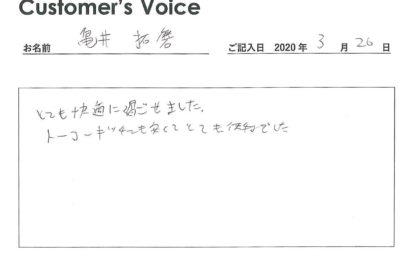 Customer's Voice
お名前 亀井 拓磨 ご記入日 2020年 3月 26日
とても快適に過ごせました。
トーヨーキッチンも広くてとても便利でした